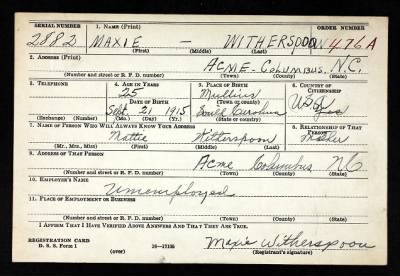 SERIAL NUMBER 1. NAME (Print) ORDER NUMBER
2882 MAXIE — WITHERSPOON 476A
(First) (Middle) (Last)
2. ADDRESS (Print)
ACME - COLUMBUS. N.C.
(Number and street or R. F. D. number) (Town) (County) (State)
3. TELEPHONE 4. AGE IN YEARS 5. PLACE OF BIRTH 6. COUNTRY OF CITIZENSHIP
25 Mullins
DATE OF BIRTH (Town or county) USA
Sept. 21 1915 South Carolina
(Exchange) (Number) (Mo.) (Day) (Yr.) (State or country)
7. NAME OF PERSON WHO WILL ALWAYS KNOW YOUR ADDRESS 8. RELATIONSHIP OF THAT PERSON
Mattie Witherspoon Mother
(Mr., Mrs., Miss) (First) (Middle) (Last)
9. ADDRESS OF THAT PERSON
Acme Columbus NC
(Number and street or R. F. D. number) (Town) (County) (State)
10. EMPLOYER'S NAME
Unemployed
11. PLACE OF EMPLOYMENT OR BUSINESS
(Number and street or R. F. D. number) (Town) (County) (State)
I AFFIRM THAT I HAVE VERIFIED ABOVE ANSWERS AND THAT THEY ARE TRUE.
REGISTRATION CARD
D. S. S. Form 1 (over) 16—17105 Maxie Witherspoon
(Registrant's signature)